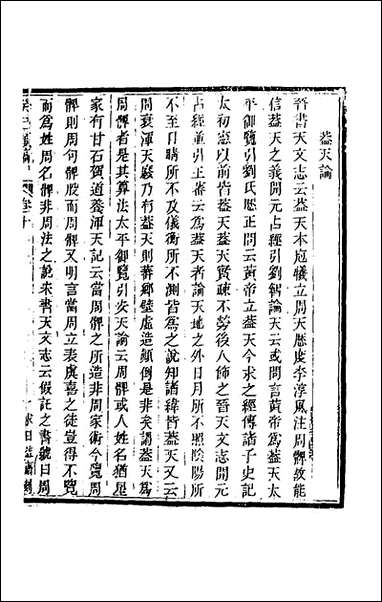 蓋天論
晉書天文志云蓋天本庖犧立周天歷度李淳風注周髀款能
信蓋天之義開元占經引劉智論天云或問言黃帝爲蓋天太
平御覽引劉氏歷正問云黃帝立蓋天今求之經傳諸子史記
太初憲以前皆蓋天蓋天賢疎不勞後人飾之晉天文志開元
占經並引王蕃云爲蓋天者論天地之外日月所不照陰陽所
不至日晷所不及儀衡所不測皆爲之說知諸緯皆蓋天又云
周衰渾天蔑乃有蓋天則莽鄉壁虛造顛倒是非矣謂蓋天爲
周髀者是其算法太平御覽引炎天論云周髀或人姓名猶星
家有甘石賀道養渾天記云當周髀之所造非周家術今覽周
髀則周句髀股而周髀又明言當周立表虞喜之徒豈得不覽
而爲姓周名髀非周法之說宋書天文志云假託之書號曰周
癸巳類稿 卷十 求日益齋刻